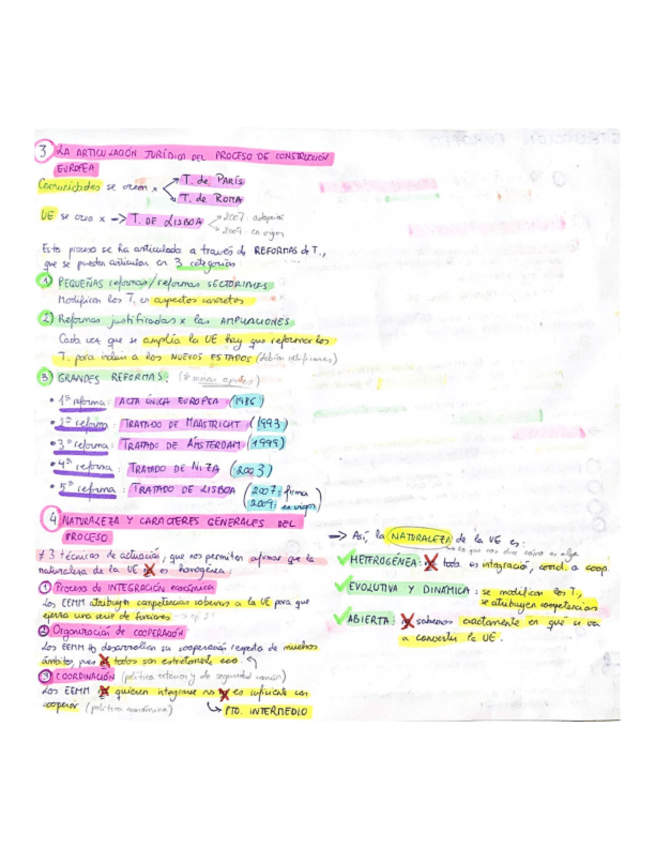 3 LA ARTICULACIÓN JURÍDICA DEL PROCESO DE CONSTRUCCIÓN
EUROPEA
Comunidades se crean x → T. de PARÍS
→ T. de ROMA
UE se crea x -> T. DE LISBOA → 2007: adopción
→ 2009: en vigor
Este proceso se ha articulado a través de REFORMAS de T.,
que se pueden articular en 3 categorías:
1) PEQUEÑAS reformas/reformas SECTORIALES
Modifican los T. en aspectos concretos
2) Reformas justificadas x las AMPLIACIONES
Cada vez que se amplía la UE hay que reformar los
T. para incluir a los NUEVOS ESTADOS (deben ratificarse)
3) GRANDES REFORMAS:
• 1ª reforma: ACTA ÚNICA EUROPEA (1986)
• 2ª reforma: TRATADO DE MAASTRICHT (1993)
• 3ª reforma: TRATADO DE ÁMSTERDAM (1999)
• 4ª reforma: TRATADO DE NIZA (2003)
• 5ª reforma: TRATADO DE LISBOA (2007: firma
2009: en vigor)
4 NATURALEZA Y CARACTERES GENERALES DEL
PROCESO
3 técnicas de actuación, que nos permiten afirmar que la
naturaleza de la UE X es homogénea:
1 Proceso de INTEGRACIÓN económica
Los EEMM atribuyen competencias soberanas a la UE para que
ejerza una serie de funciones
2 Organización de COOPERACIÓN
Los EEMM desarrollan su cooperación respecto de muchos
ámbitos, pues X todos son estrictamente eco.
3 COORDINACIÓN (política exterior y de seguridad común)
Los EEMM X quieren integrarse no X es suficiente con
cooperar (política económica) → PTO. INTERMEDIO
-> Así, la NATURALEZA de la UE es:
lo que nos dice cómo es algo
✓ HETEROGÉNEA: X todo es integración, coord. o coop.
✓ EVOLUTIVA Y DINÁMICA: se modifican los T.,
se atribuyen competencias
✓ ABIERTA: X sabemos exactamente en qué se va
a convertir la UE.